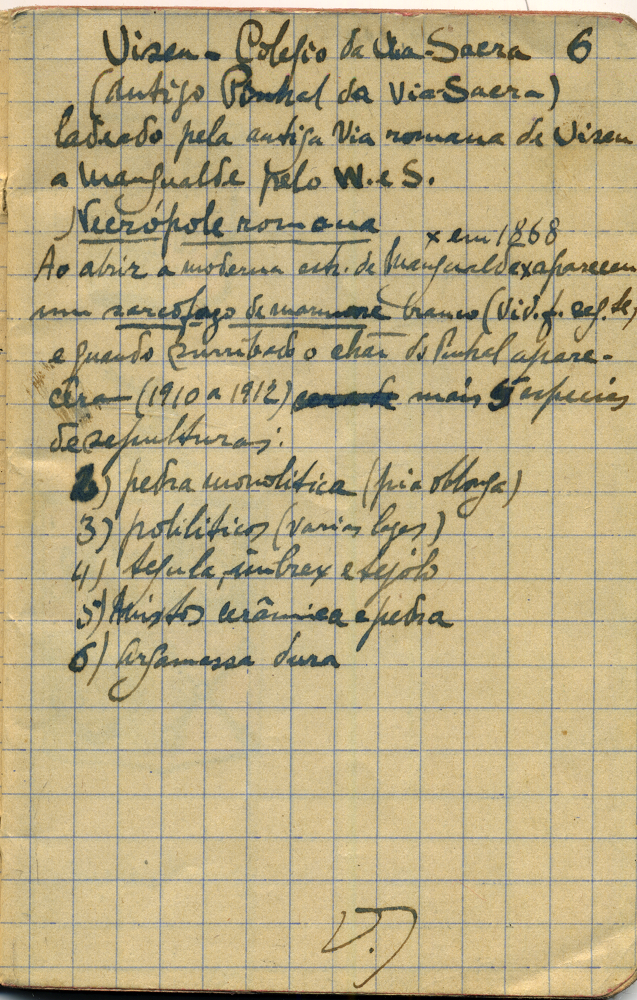 Viseu - Colegio da Via-Sacra 6
(antigo Pinhal da Via-Sacra)
ladeado pela antiga Via romana de Viseu
a Mangualde pelo W. e S.
Necrópole romana
x em 1868
Ao abrir a moderna estr. de Mangualde x apareceu
um sarcofago de marmore branco (Vid. f. seg.te)
e quando surribado o chão do Pinhal apare-
cera (1910 a 1912) mais 5 especies
de sepulturas:
2) pedra monolitica (pia oblonga)
3) poliliticos (varias lages)
4) tegula, imbrex e tejolo
5) Mixtos cerâmica e pedra
6) Argamassa dura
V.)